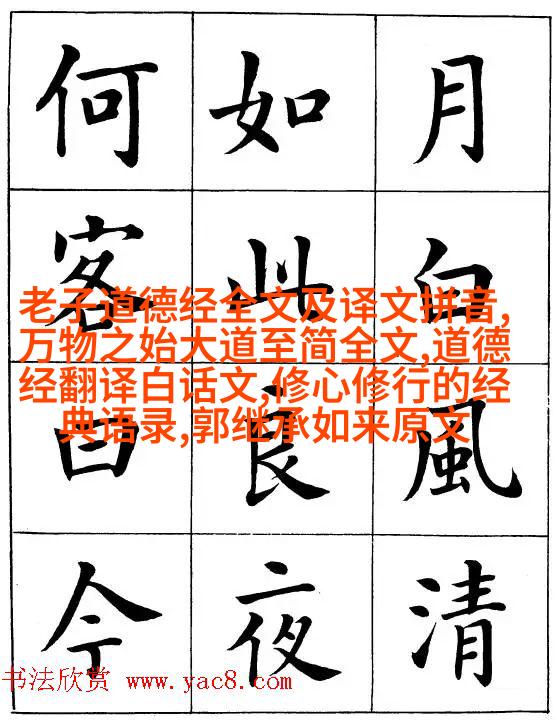 月白風清
如此良夜
何客曰今
老子道德经全文及译文拼音,
万物之始大道至简全文,道德
经翻译白话文,修心修行的经
典语录,郭继承如来原文
书法欣赏 www.yac8.com